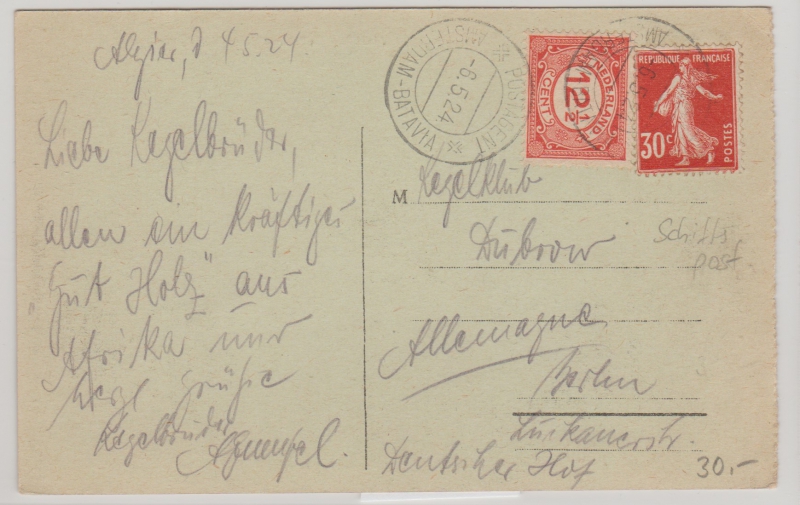 Algier, d 4.5.24.
Liebe Kegelbrüder,
allen ein kräftiges
"Gut Holz" aus
Afrika und
herzl Grüße
Kegelbruder
POSTAGENT
AMSTERDAM-BATAVIA
-6.5.24
NEDERLAND
12½
CENT
REPUBLIQUE FRANÇAISE
30c
POSTES
M Kegelklub
Dubrow
Schiffs
post
Allemagne
Berlin
Deutscher Hof
30.-